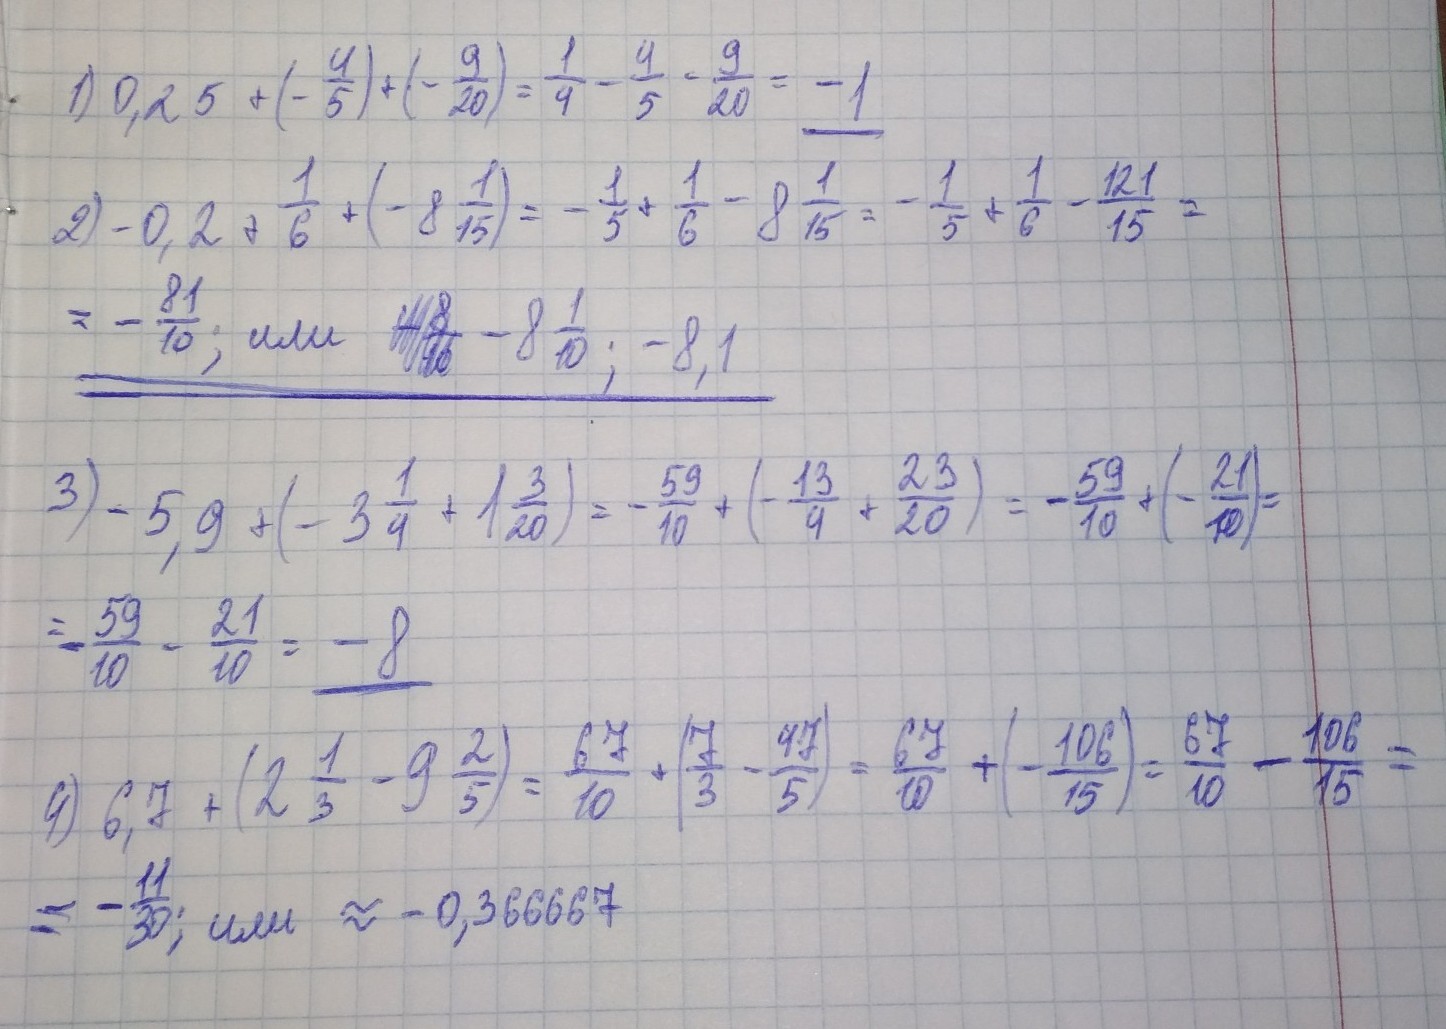 1) 0,25 + (- 4/5) + (- 9/20) = 1/4 - 4/5 - 9/20 = -1
2) -0,2 + 1/6 + (-8 1/15) = - 1/5 + 1/6 - 8 1/15 = - 1/5 + 1/6 - 121/15 =
= - 81/10; или -8 1/10; -8,1
3) -5,9 + (-3 1/4 + 1 3/20) = - 59/10 + (- 13/4 + 23/20) = - 59/10 + (- 21/10) =
= - 59/10 - 21/10 = -8
4) 6,7 + (2 1/3 - 9 2/5) = 67/10 + (7/3 - 47/5) = 67/10 + (- 106/15) = 67/10 - 106/15 =
= - 11/30; или ≈ -0,366667